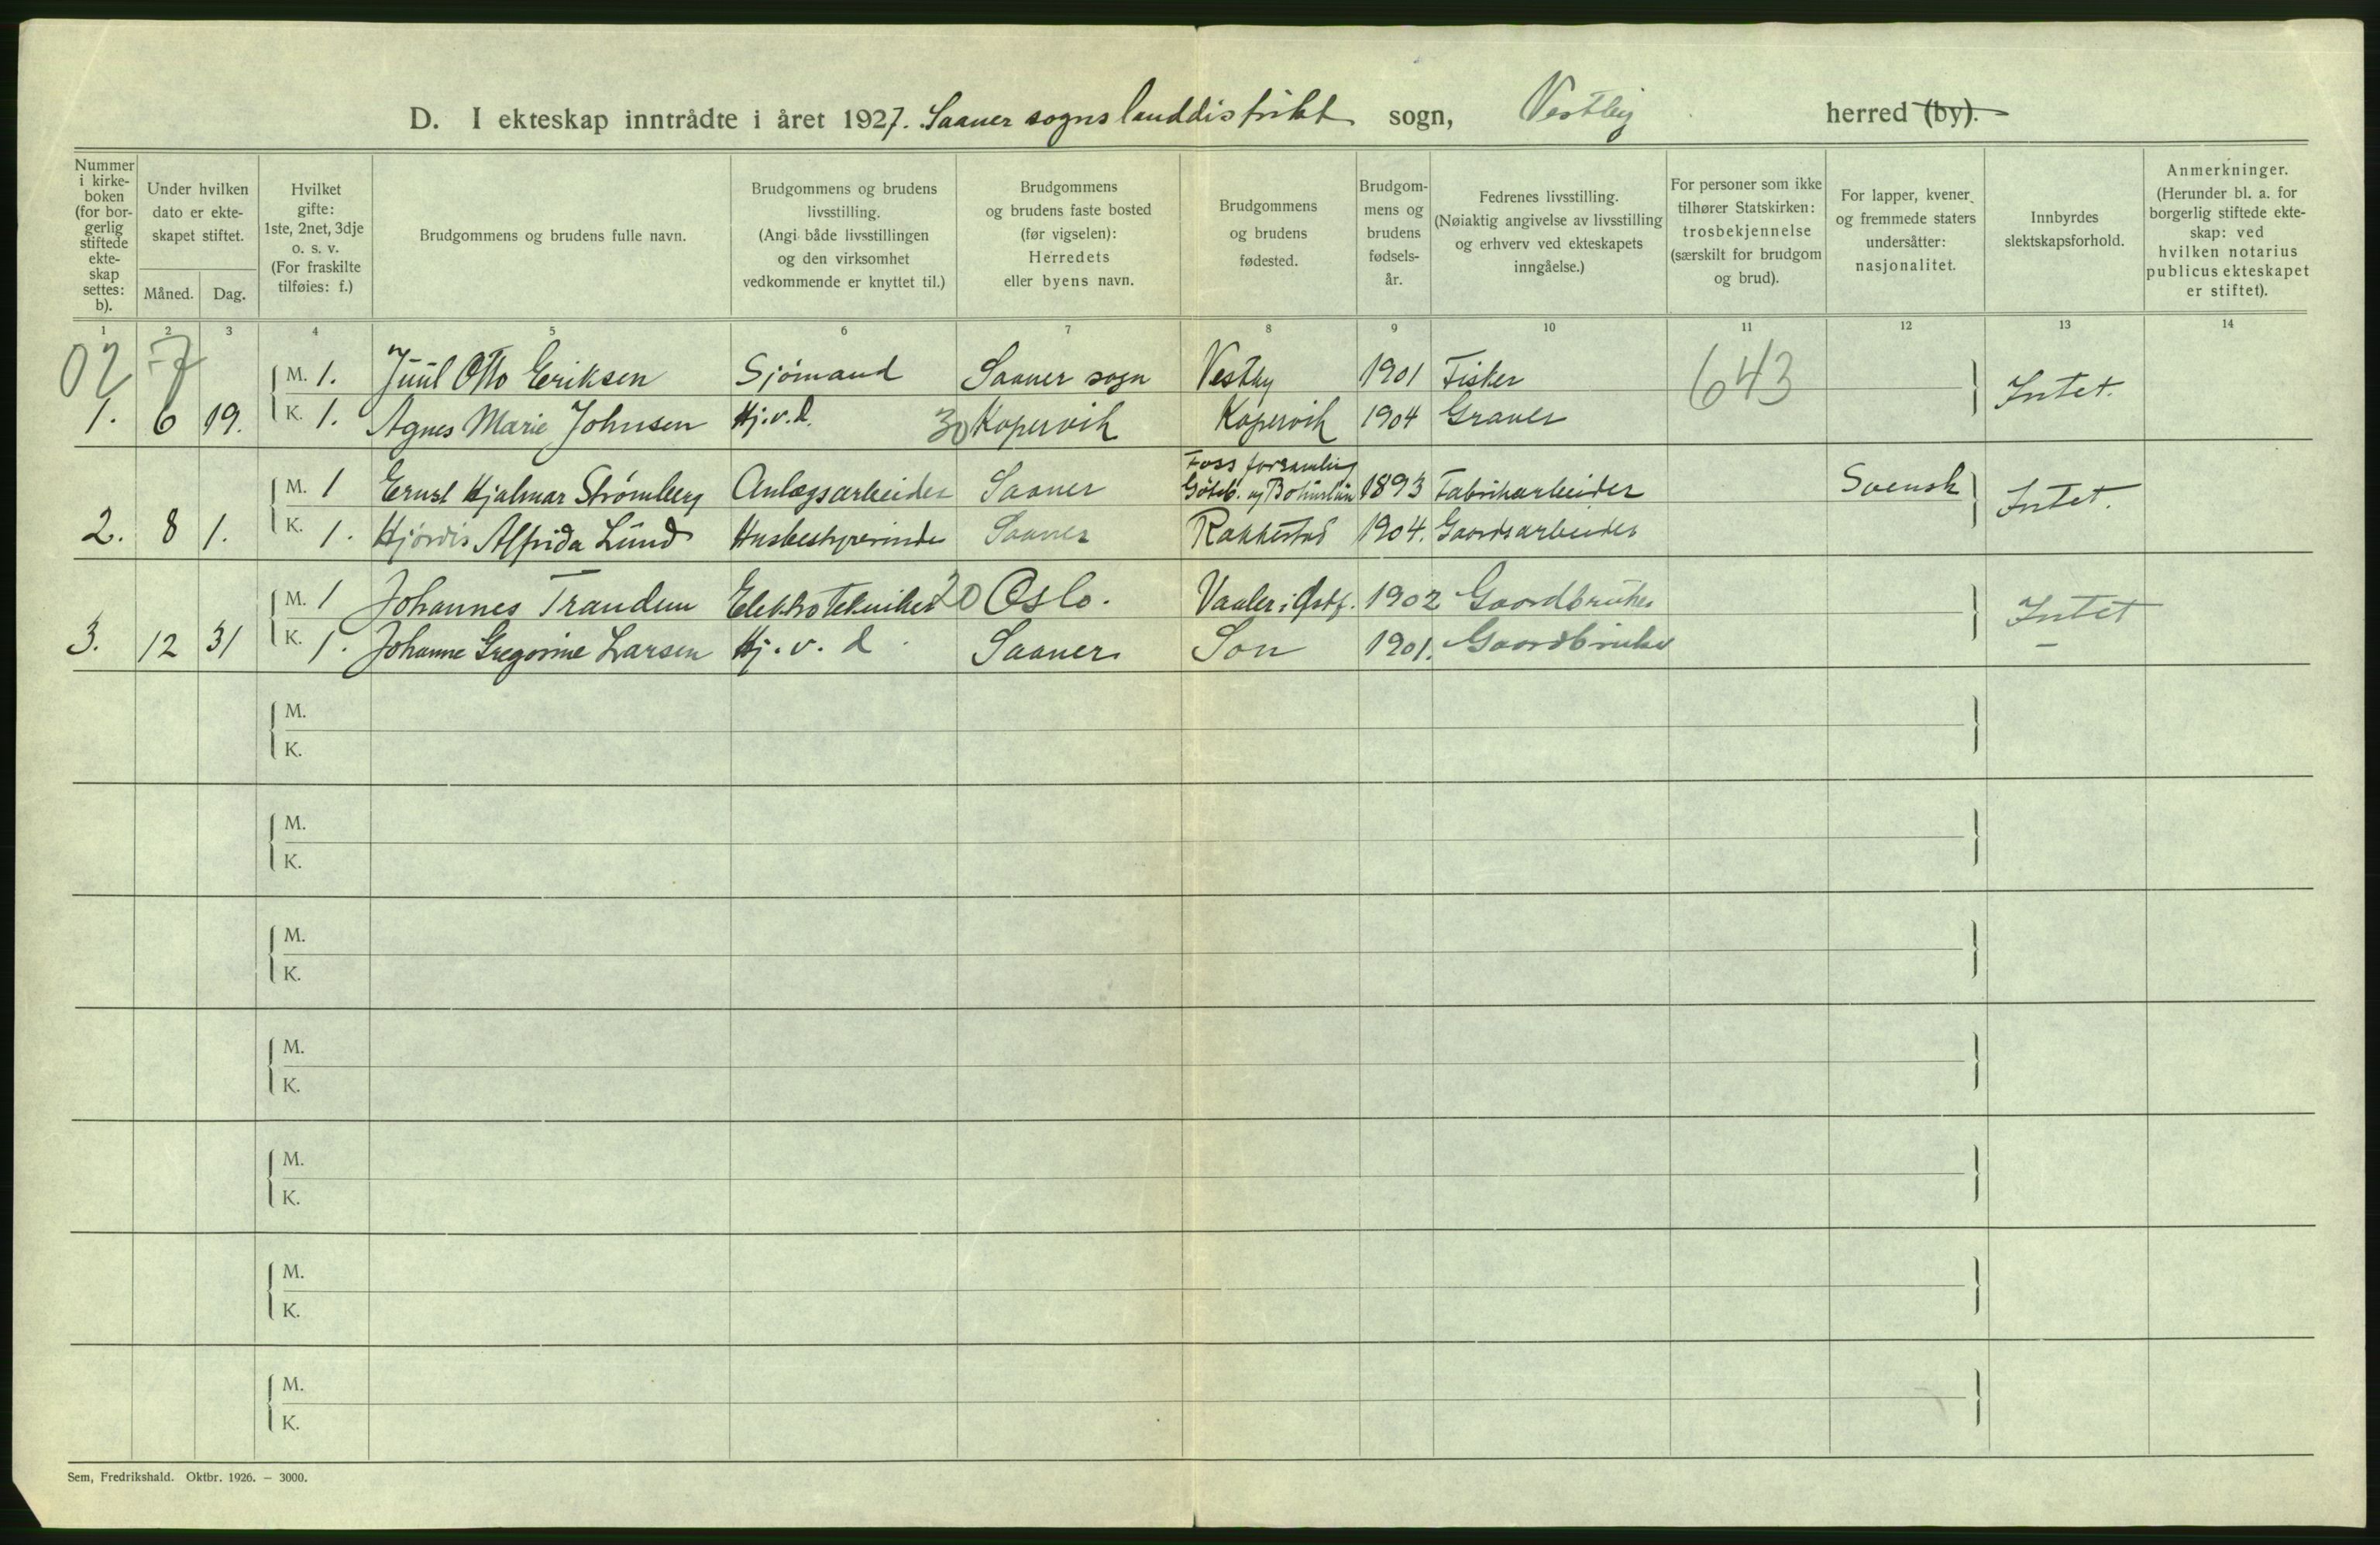 D. I ekteskap inntrådte i året 1927. Saaner sogns landdistrikt sogn, Vestby herred (by).
Nummer i kirkeboken (for borgerlig stiftede ekteskap settes: b).
Under hvilken dato er ekteskapet stiftet.
Måned. Dag.
Hvilket gifte: 1ste, 2net, 3dje o. s. v. (For fraskilte tilføies: f.)
Brudgommens og brudens fulle navn.
Brudgommens og brudens livsstilling. (Angi både livsstillingen og den virksomhet vedkommende er knyttet til.)
Brudgommens og brudens faste bosted (før vigselen): Herredets eller byens navn.
Brudgommens og brudens fødested.
Brudgommens og brudens fødselsår.
Fedrenes livsstilling. (Nøiaktig angivelse av livsstilling og erhverv ved ekteskapets inngåelse.)
For personer som ikke tilhører Statskirken: trosbekjennelse (særskilt for brudgom og brud).
For lapper, kvener og fremmede staters undersåtter: nasjonalitet.
Innbyrdes slektskapsforhold.
Anmerkninger. (Herunder bl. a. for borgerlig stiftede ekteskap: ved hvilken notarius publicus ekteskapet er stiftet).
1 2 3 4 5 6 7 8 9 10 11 12 13 14
02 - 7
M. 1. Juul Otto Eriksen Sjömand Saaner sogn Vestby 1901 Fisker 643
1. 6 19. K. 1. Agnes Marie Johnsen Hj.v.d. 30 Kopervik Kopervik 1904 Graver Intet.
M. 1 Ernst Hjalmar Strömberg Anlægsarbeider Saaner Foss forsamling Göteb. og Bohuslän 1893 Fabrikarbeider Svensk
2. 8 1. K. 1. Hjördis Alfrida Lund Husbestyrerinde Saaner Rakkestad 1904. Gaardsarbeider Intet.
M. 1 Johannes Trandem Elektrotekniker 20 Oslo. Vaaler i Østf. 1902 Gaardbruker
3. 12 31 K. 1. Johanne Gregorine Larsen Hj. v. d. Saaner. Son 1901. Gaardbruker Intet
M.
K.
M.
K.
M.
K.
M.
K.
M.
K.
M.
K.
M.
K.
Sem, Fredrikshald. Oktbr. 1926. — 3000.